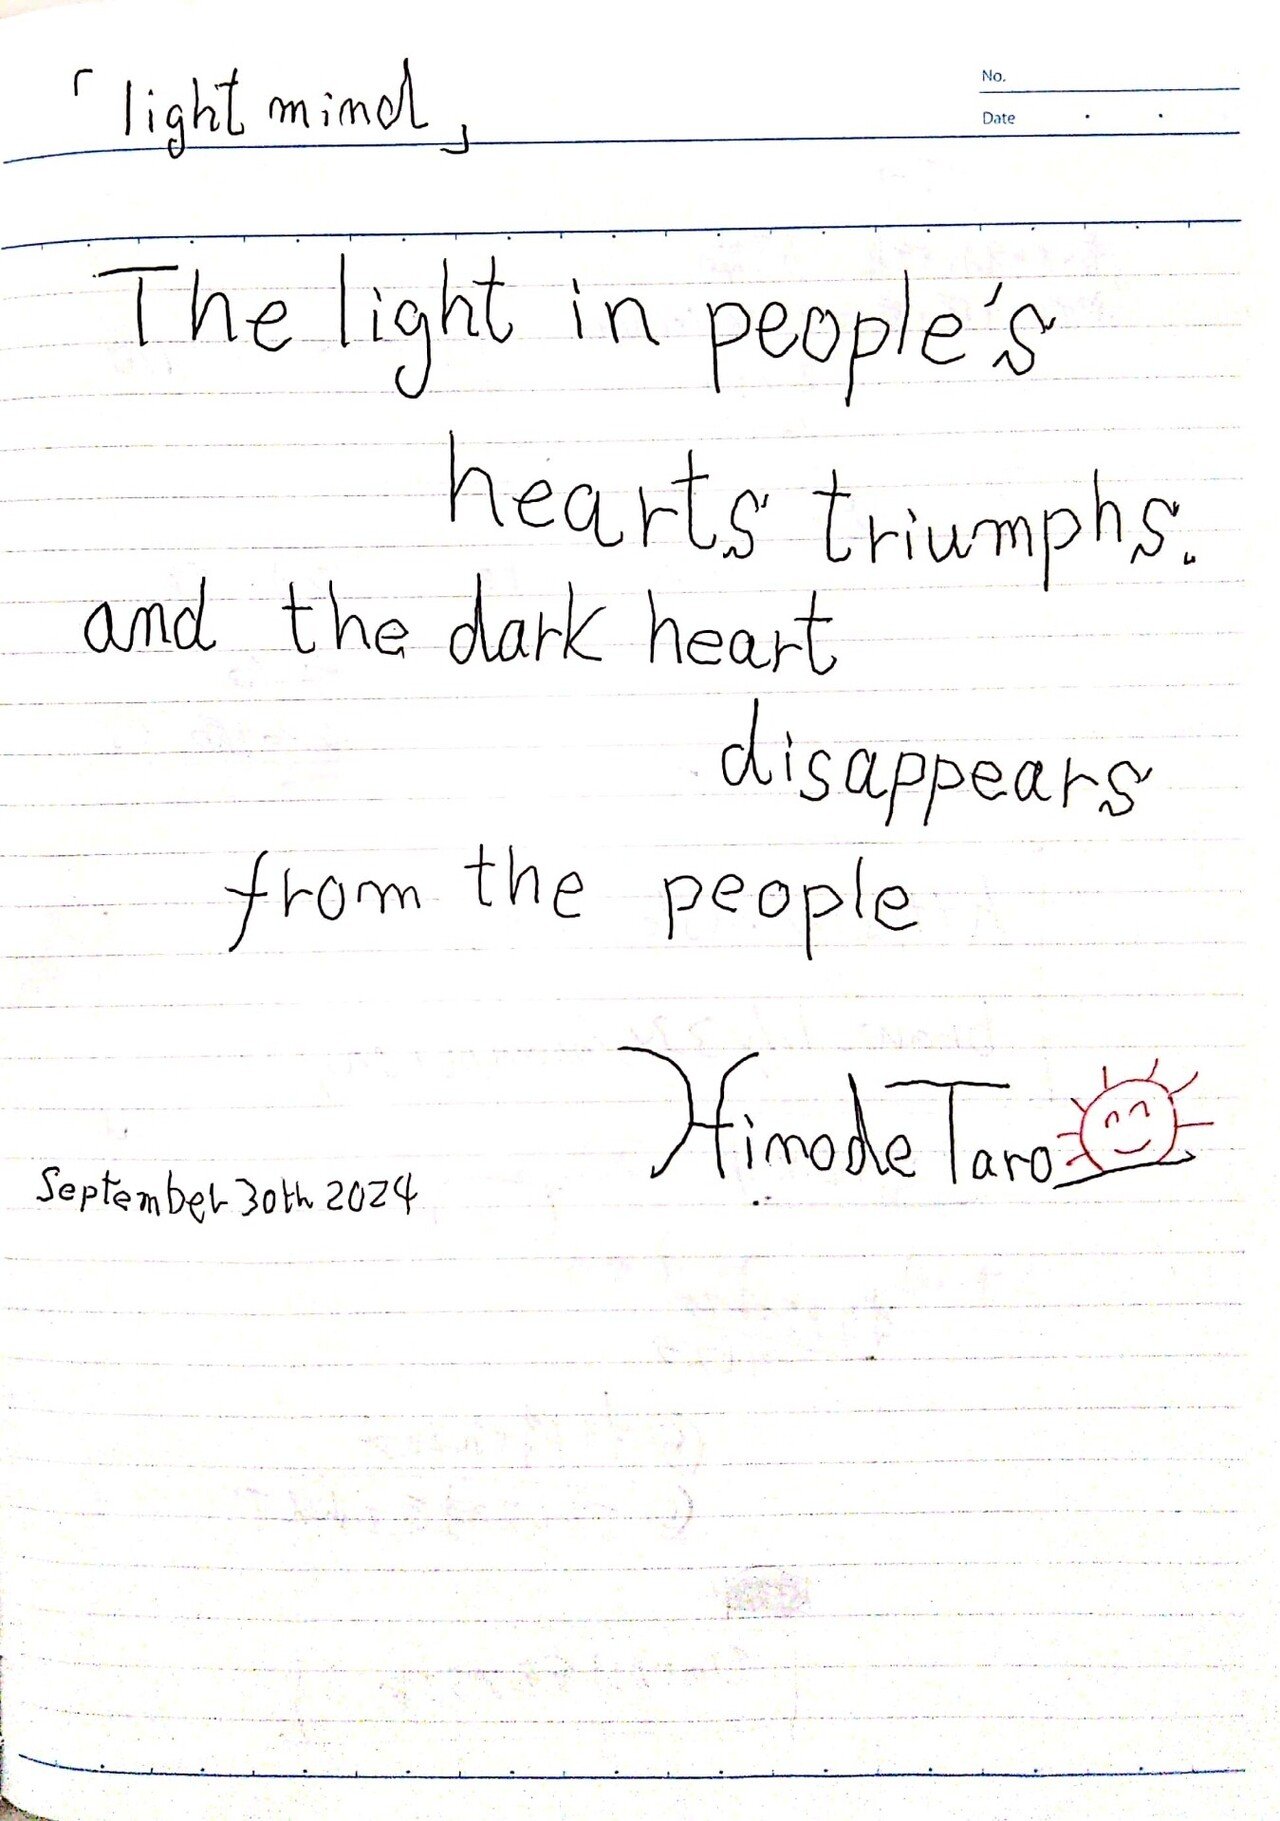 「light mind」
No.
Date
The light in people's
hearts triumphs.
and the dark heart
disappears
from the people
Himode Taro
September 30th 2024